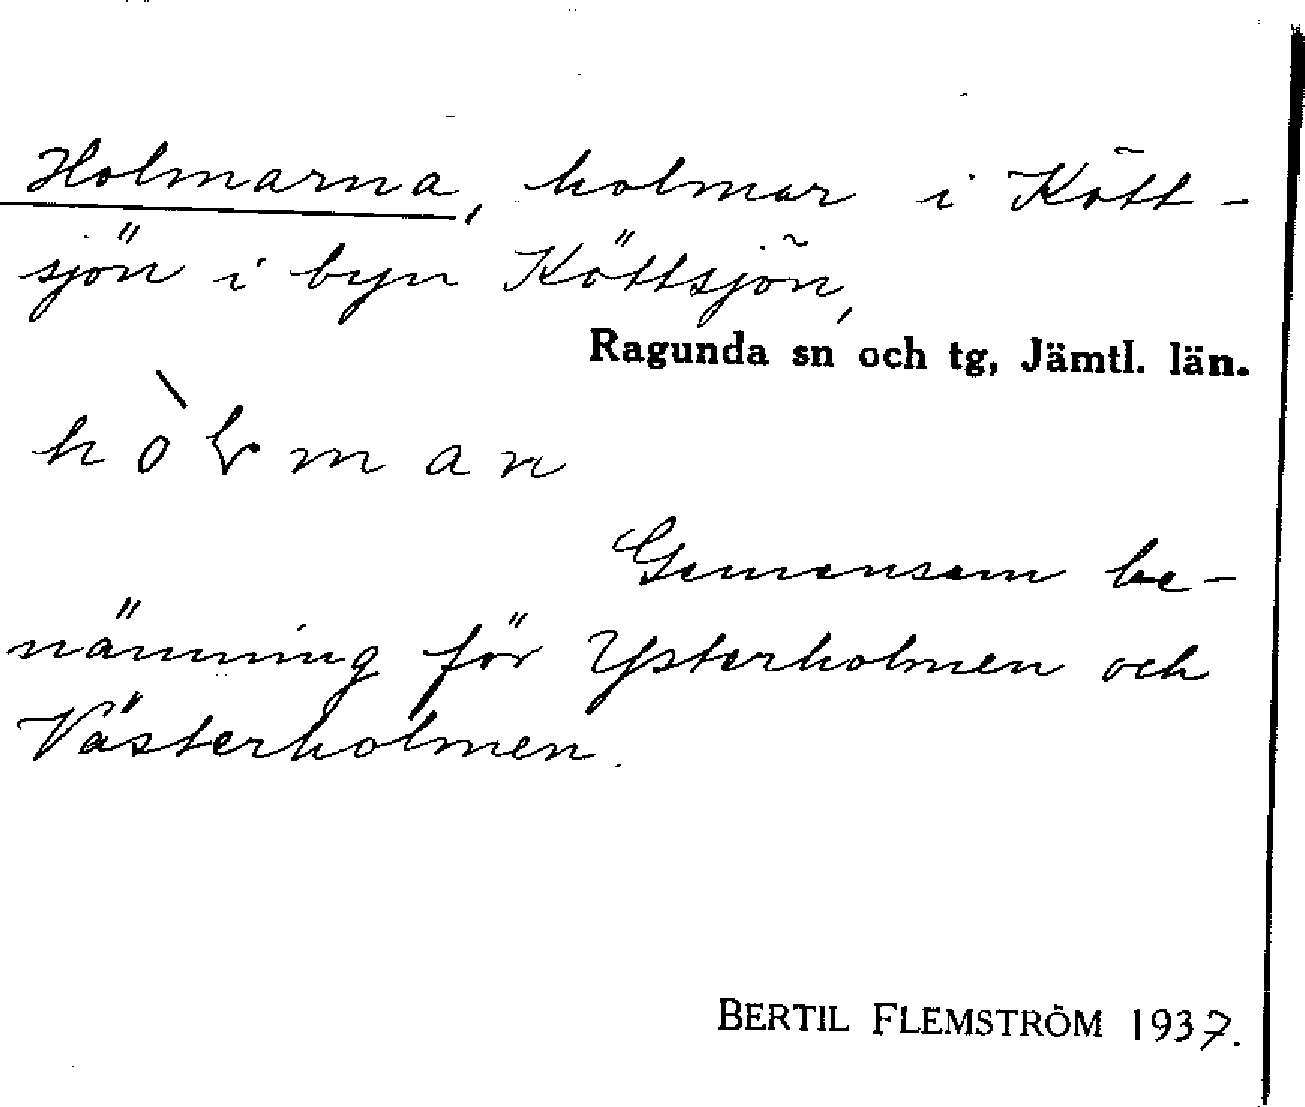 Holmarna, holmar i Kött-
sjön i byn Köttsjön,
Ragunda sn och tg, Jämtl. län.
hòɽman
Gemensam be-
nämning för Ysterholmen och
Västerholmen.
BERTIL FLEMSTRÖM 1937.